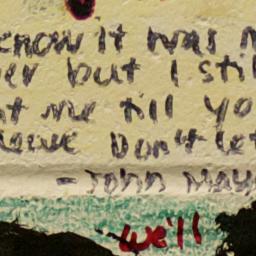 know it was
er but I still
me till yo
leave Don't let
- John May
we'll